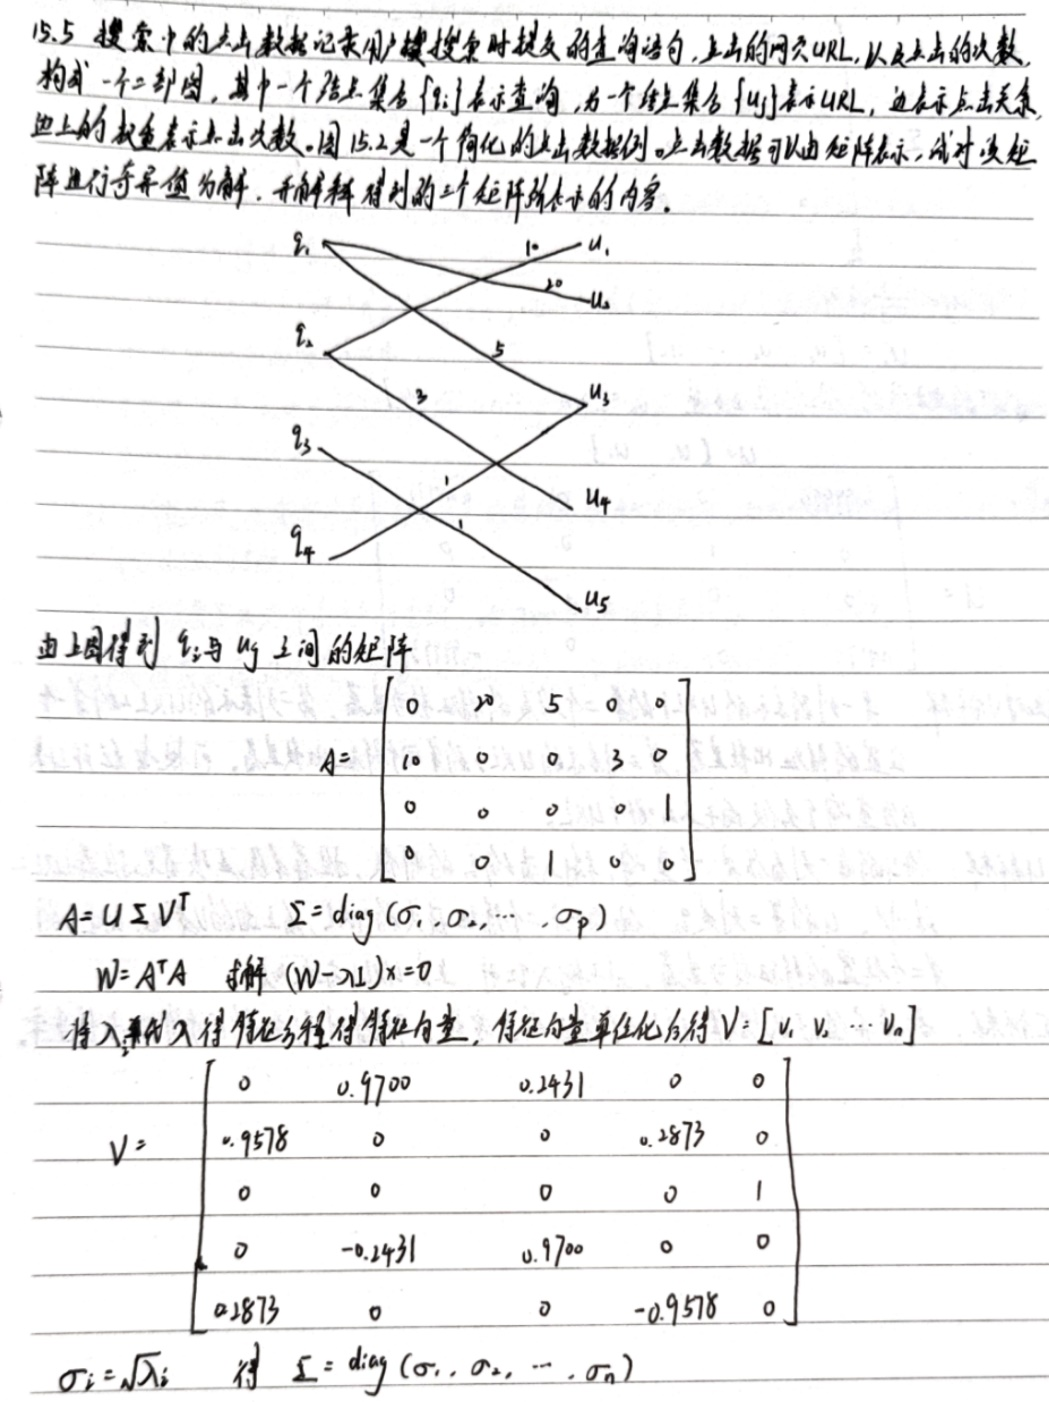 15.5 搜索中的点击数据记录用户搜搜索时提交的查询语句,点击的网页URL,以及点击的次数,
构成一个二部图,其中一个结点集合{qi}表示查询,另一个结点集合{uj}表示URL,边表示点击关系,
边上的权重表示点击次数。图15.2是一个简化的点击数据例。点击数据可以由矩阵表示,试对该矩
阵进行奇异值分解,并解释得到的三个矩阵所表示的内容。
q₁ 10 u₁
20 u₂
q₂ 5
3 u₃
q₃
1 u₄
q₄ 1
u₅
由上图得到 qi与uj之间的矩阵
A= [ 0 20 5 0 0
10 0 0 3 0
0 0 0 0 1
0 0 1 0 0 ]
A=UΣVᵀ Σ=diag(σ₁,σ₂,⋯,σp)
W=AᵀA 求解 (W-λI)x=0
将λi代入得特征方程得特征向量,特征向量单位化后得V=[v₁ v₂ ⋯ vn]
V= [ 0 0.9700 0.2431 0 0
0.9578 0 0 0.2873 0
0 0 0 0 1
0 -0.2431 0.9700 0 0
0.2873 0 0 -0.9578 0 ]
σi=√λi 得 Σ=diag(σ₁,σ₂,⋯,σn)